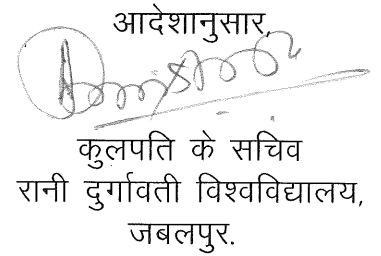 आदेशानुसार,
कुलपति के सचिव
रानी दुर्गावती विश्वविद्यालय,
जबलपुर.